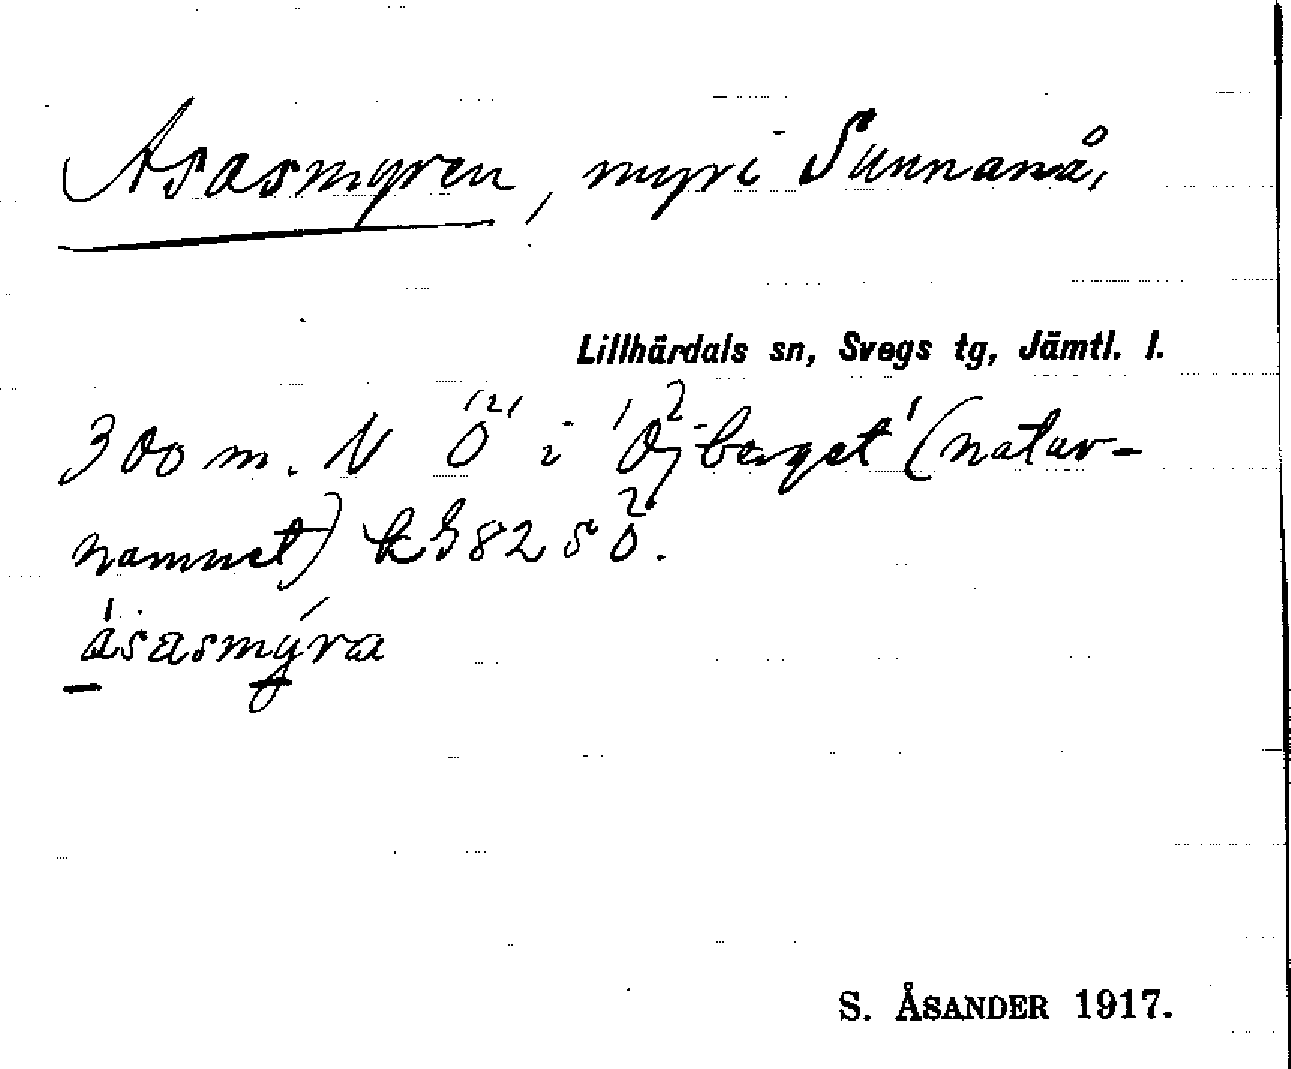 Asasmyren, myr i Sunnanå,
Lillhärdals sn, Svegs tg, Jämtl. l.
300 m. N Ö i 'Öjberget' (natur-
namnet) k 382 s ö.
ásasmýra
S. ÅSANDER 1917.